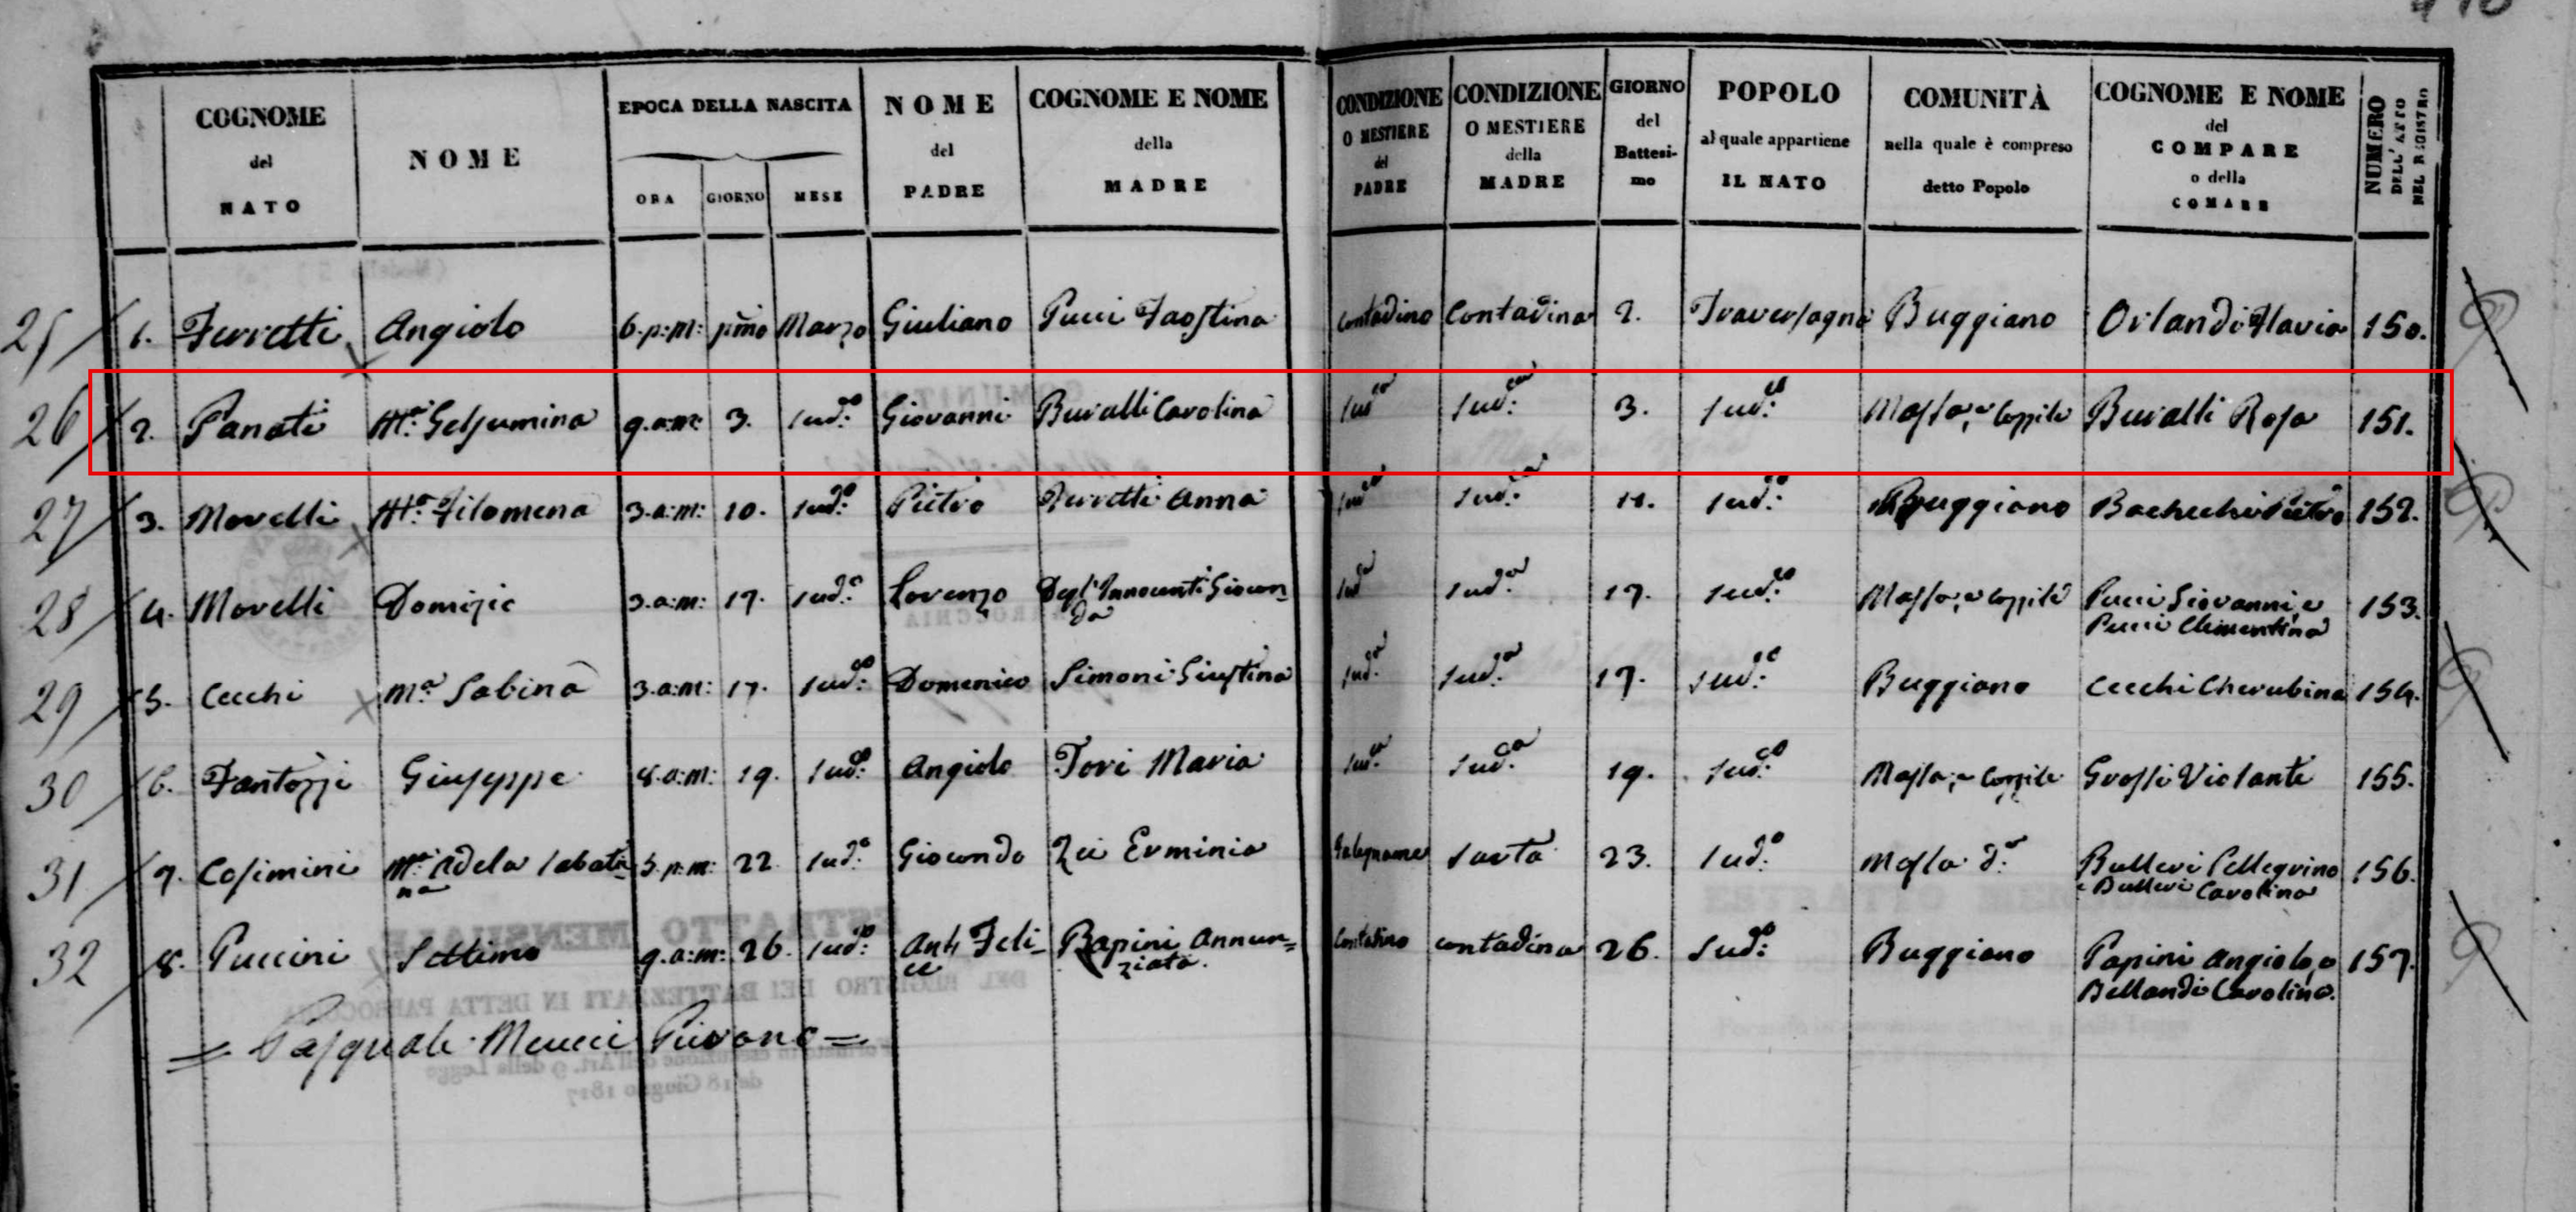 COGNOME del NATO | NOME | EPOCA DELLA NASCITA: ORA, GIORNO, MESE | NOME del PADRE | COGNOME E NOME della MADRE | CONDIZIONE O MESTIERE del PADRE | CONDIZIONE O MESTIERE della MADRE | GIORNO del Battesi-mo | POPOLO al quale appartiene IL NATO | COMUNITÀ nella quale è compreso detto Popolo | COGNOME E NOME del COMPARE o della COMARE | NUMERO DELL'ATTO NEL REGISTRO
25 1. Ferretti Angiolo 6. p:m: pmo Marzo Giuliano Pucci Faostina Contadino Contadina 2. Traversagna Buggiano Orlandi Flavia 150.
26 2. Panati Ma: Gelsumina 9. a:m: 3. sudo: Giovanni Buralli Carolina 3. sudo: Massa, e Cozzile Buralli Rosa 151.
27 3. Morelli Ma: Filomena 3. a:m: 10. sudo: Pietro Ferretti Anna 11. sudo: Buggiano Bachecchi Pietro 152.
28 4. Morelli Domizio 3. a:m: 17. sudo: Lorenzo Degl'Innocenti Giocon- sudo sudo: 17. sudo: Massa, e Cozzile Pucci Giovanni, e 153.
da Pucci Clementina
29 5. Cecchi Ma: Sabina 3. a:m: 17. sudo: Domenico Simoni Giustina suda: suda: 17. sudo: Buggiano Cecchi Cherubina 154.
30 6. Fantozzi Giuseppe 8. a:m: 19. sudo: Angiolo Tori Maria suda: suda: 19. sudo: Massa, e Cozzile Grossi Violante 155.
31 7. Cosimini Ma: Adela Sabati- 5. p:m: 22. sudo: Giocondo Zei Erminia Falegname sarta 23. sudo: Massa da: Bulleri Pellegrino 156.
na e Bulleri Carolina
32 8. Puccini Settimo 9. a:m: 26. sudo: Anto Feli- Papini Annun= Contadino contadina 26. sudo: Buggiano Papini Angiolo, e 157.
ce ziata. Bellandi Carolina.
= Pasquale Meucci Pievano =